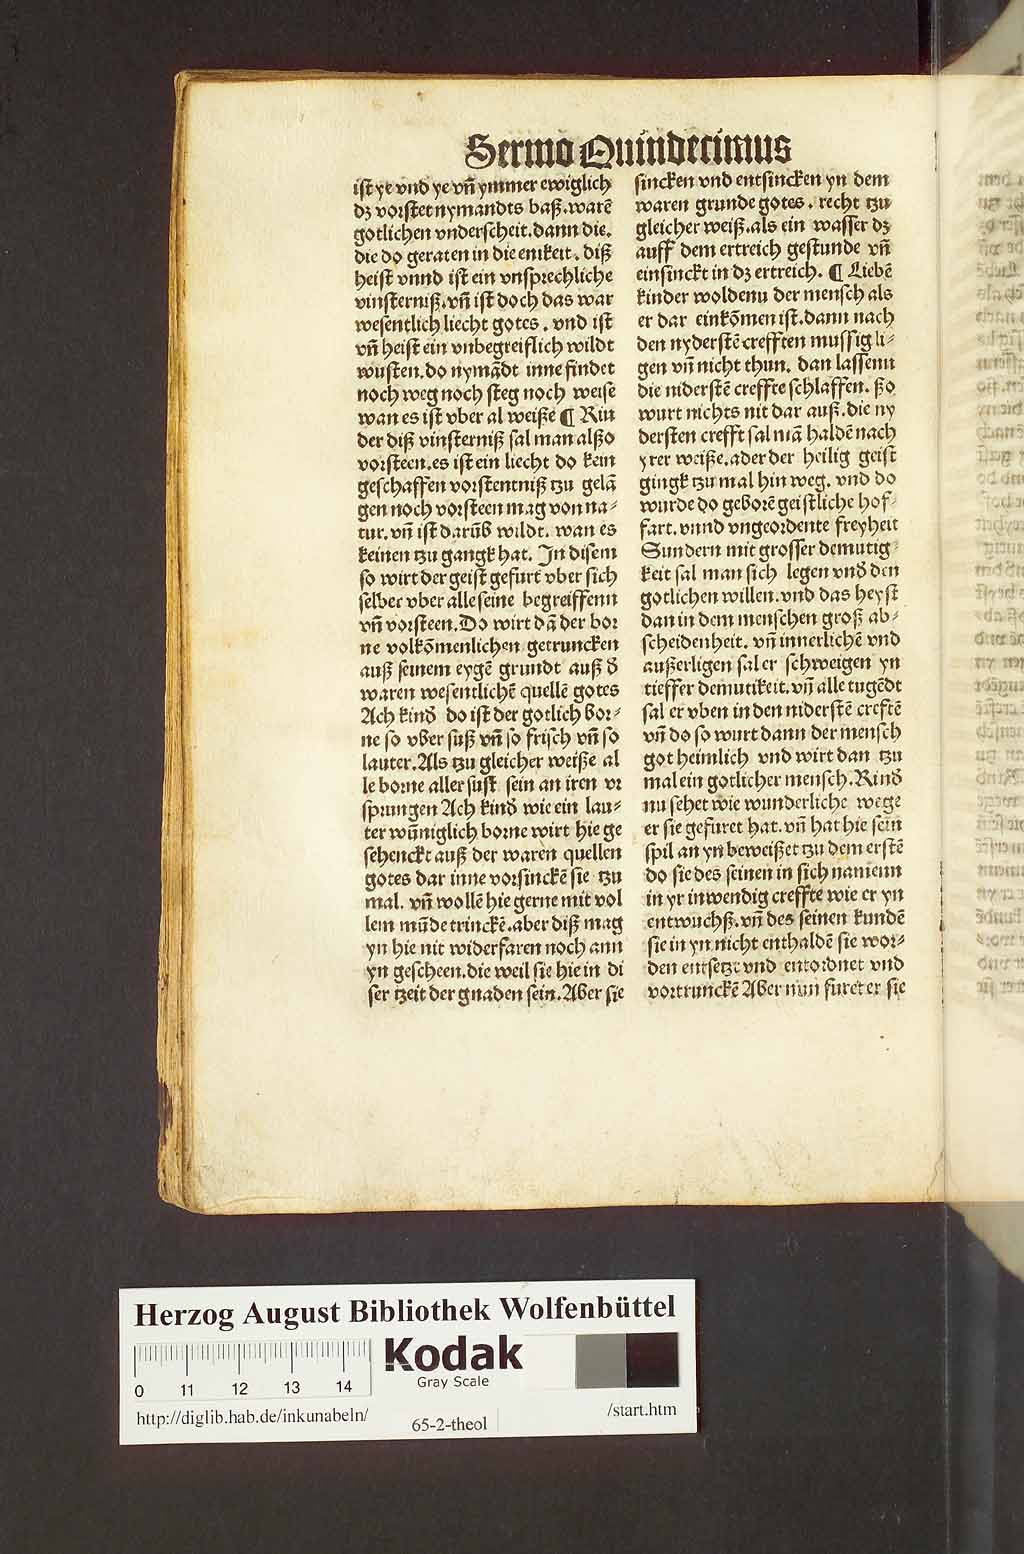 Sermo Quindecimus
ist ye vnd ye vn̄ ymmer ewiglich
dz vorstet nymandts baß. warē
gotlichen vnderscheit. dann die.
die do geraten in die enikeit. diß
heist vnnd ist ein vnsprechliche
vinsterniß. vn̄ ist doch das war
wesentlich liecht gotes. vnd ist
vn̄ heist ein vnbegreiflich wildt
wusten. do nymādt inne findet
noch weg noch steg noch weise
wan es ist vber al weiße ¶ Kin
der diß vinsterniß sal man alßo
vorsteen. es ist ein liecht do kein
geschaffen vorstentniß tzu gelā
gen noch vorsteen mag von na⸗
tur. vn̄ ist darūb wildt. wan es
keinen tzu gangk hat. In disem
so wirt der geist gefurt vber sich
selber vber alle seine begreiffenn
vn̄ vorsteen. Do wirt dā der bor
ne volkōmenlichen getruncken
auß seinem eygē grundt auß d̕
waren wesentlichē quellē gotes
Ach kind̕ do ist der gotlich bor⸗
ne so vber suß vn̄ so frisch vn̄ so
lauter. Als tzu gleicher weiße al
le borne aller sust sein an iren vr
sprungen Ach kind̕ wie ein lau⸗
ter wūniglich borne wirt hie ge
schenckt auß der waren quellen
gotes dar inne vorsinckē sie tzu
mal. vn̄ wollē hie gerne mit vol
lem mūde trinckē. aber diß mag
yn hie nit widerfaren noch ann
yn gescheen. die weil sie hie in di
ser tzeit der gnaden sein. Aber sie
sincken vnd entsincken yn dem
waren grunde gotes. recht tzu
gleicher weiß. als ein wasser dz
auff dem ertreich gestunde vn̄
einsinckt in dz ertreich. ¶ Liebē
kinder woldenu der mensch als
er dar einkōmen ist. dann nach
den nyderstē crefften mussig li⸗
gen vn̄ nicht thun. dan lassenn
die niderstē creffte schlaffen. ßo
wurt nichts nit dar auß. die ny
dersten crefft sal mā haldē nach
yrer weiße. ader der heilig geist
gingk tzu mal hin weg. vnd do
wurde do geborē geistliche hof⸗
fart. vnnd vngeordente freyheit
Sundern mit grosser demutig⸗
keit sal man sich legen vnd̕ den
gotlichen willen. vnd das heyst
dan in dem menschen groß ab⸗
scheidenheit. vn̄ innerlichē vnd
außerligen sal er schweigen yn
tieffer demutikeit. vn̄ alle tugēdt
sal er vben in den niderstē creftē
vn̄ do so wurt dann der mensch
got heimlich vnd wirt dan tzu
mal ein gotlicher mensch. Kind̕
nu sehet wie wunderliche wege
er sie gefuret hat. vn̄ hat hie sein
spil an yn beweißet tzu dem erstē
do sie des seinen in sich namenn
in yr inwendig creffte wie er yn
entwuchß. vn̄ des seinen kundē
sie in yn nicht enthaldē sie wor⸗
den entsetzt vnd entordnet vnd
vortrunckē Aber nun furet er sie
Herzog August Bibliothek Wolfenbüttel
0 11 12 13 14
Kodak
Gray Scale
http://diglib.hab.de/inkunabeln/
65-2-theol
/start.htm